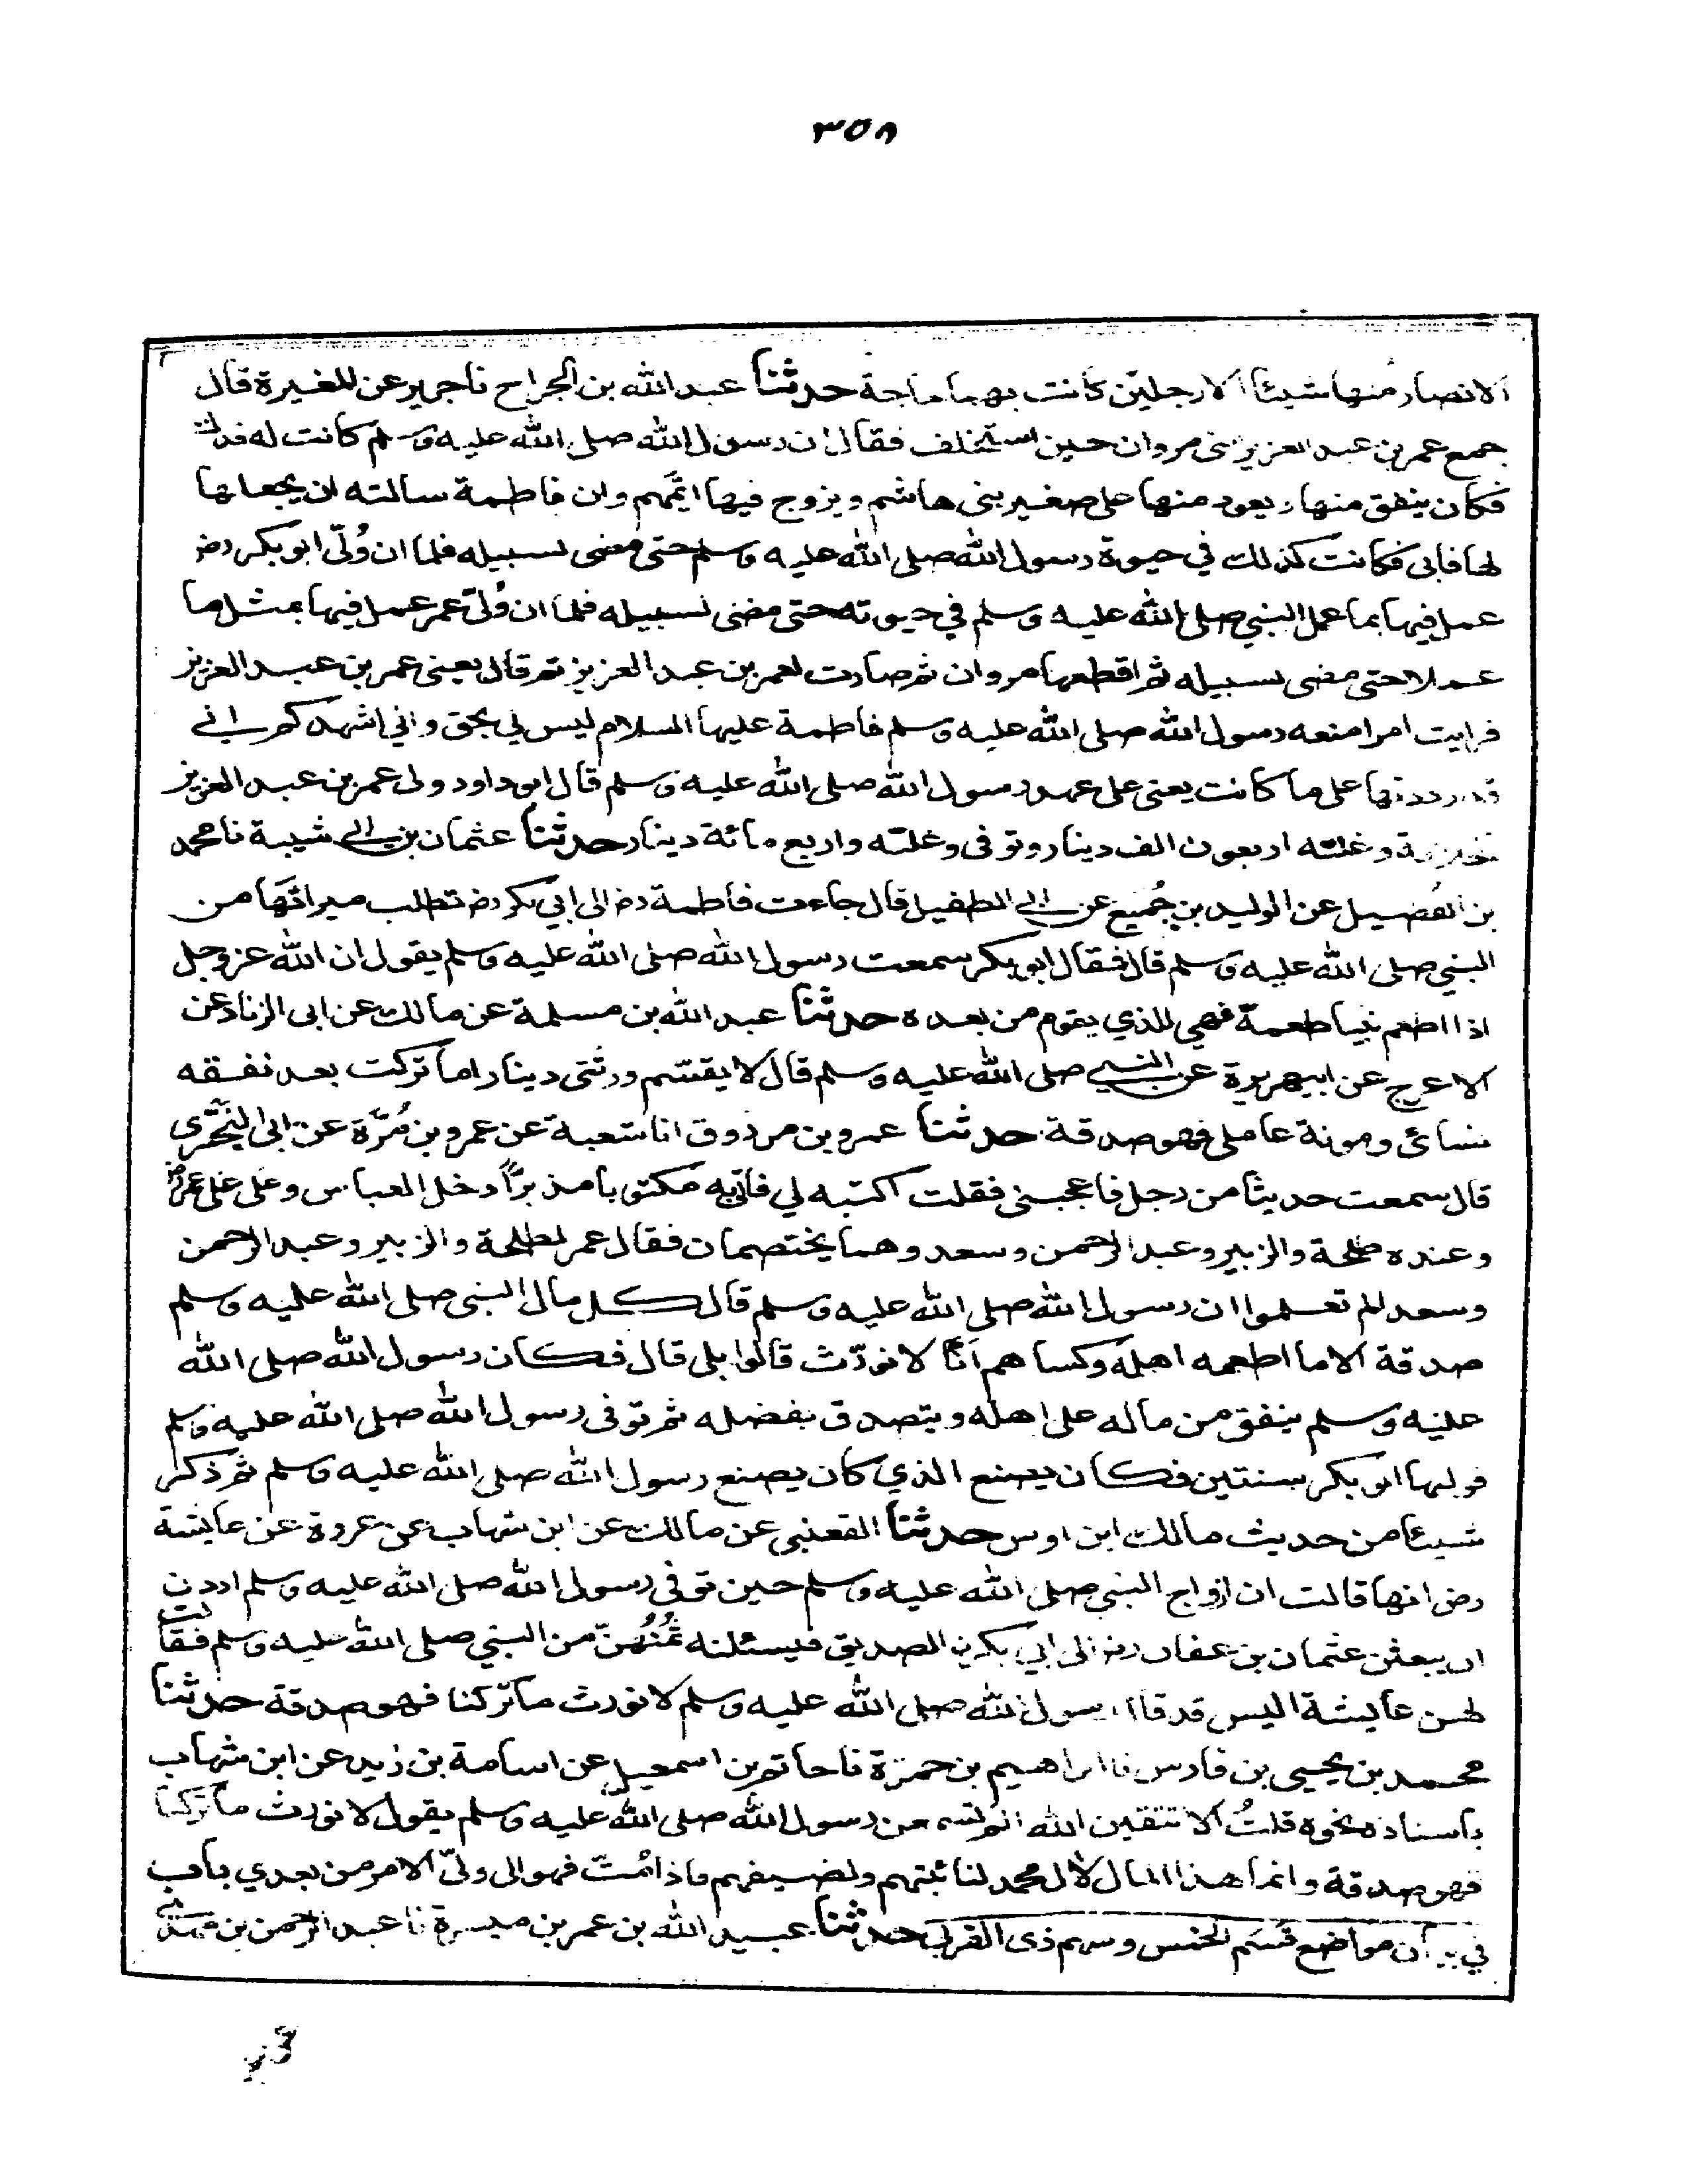 ٣٥٨
الانصار منها شيئا الا رجلين كانت بهما حاجة حدثنا عبد الله بن الجراح نا جرير عن المغيرة قال
جمع عمر بن عبد العزيز بنى مروان حين استخلف فقال ان رسول الله صلى الله عليه وسلم كانت له فدك
فكان ينفق منها ويعود منها على صغير بنى هاشم ويزوج فيها ايّمهم وان فاطمة سالته ان يجعلها
لها فابى فكانت كذلك في حيوة رسول الله صلى الله عليه وسلم حتى مضى لسبيله فلما ان وُلّى ابو بكر رض
عمل فيها بما عمل النبي صلى الله عليه وسلم في حيوته حتى مضى لسبيله فلما ان وُلّى عمر عمل فيها بمثل ما
عملا حتى مضى لسبيله ثم اقطعها مروان ثم صارت لعمر بن عبد العزيز ثم قال يعنى عمر بن عبد العزيز
فرايت امرا منعه رسول الله صلى الله عليه وسلم فاطمة عليها السلام ليس لي بحق واني اشهدكم اني
قد رددتها على ما كانت يعنى على عهد رسول الله صلى الله عليه وسلم قال ابو داود ولى عمر بن عبد العزيز
الخلافة وغلته اربعون الف دينار وتوفى وغلته واربع مائة دينار حدثنا عثمان بن ابي شيبة نا محمد
بن الفُضيل عن الوليد بن جُميع عن ابي الطفيل قال جاءت فاطمة رض الى ابي بكر رض تطلب ميراثها من
النبي صلى الله عليه وسلم قال فقال ابو بكر سمعت رسول الله صلى الله عليه وسلم يقول ان الله عز وجل
اذا اطعم نبيا طعمة فهي للذي يقوم من بعده حدثنا عبد الله بن مسلمة عن مالك عن ابى الزناد عن
الاعرج عن ابيهريرة عن النبي صلى الله عليه وسلم قال لا يقتسم ورثتى دينارا ما تركت بعد نفقه
نسائى ومونة عاملى فهو صدقة حدثنا عمرو بن مرزوق انا شعبة عن عمرو بن مُرّة عن ابى البَخْتَرى
قال سمعت حديثا من رجل فاعجبنى فقلت اكتبه لي فاتى به مكتوبا مذبرًّا دخل العباس وعلى على عمر رض
وعنده طلحة والزبير وعبد الرحمن وسعد وهما يختصمان فقال عمر لطلحة والزبير وعبد الرحمن
وسعد الم تعلموا ان رسول الله صلى الله عليه وسلم قال كل مال النبى صلى الله عليه وسلم
صدقة الا ما اطعمه اهله وكساهم انّا لا نورّث قالوا بلى قال فكان رسول الله صلى الله
عليه وسلم ينفق من ماله على اهله ويتصدق بفضله ثم توفى رسول الله صلى الله عليه وسلم
فوليها ابو بكر سنتين فكان يصنع الذي كان يصنع رسول الله صلى الله عليه وسلم ثم ذكر
شيئا من حديث مالك ابن اوس حدثنا القعنبى عن مالك عن ابن شهاب عن عروة عن عايشة
رض انها قالت ان ازواج النبى صلى الله عليه وسلم حين توفى رسول الله صلى الله عليه وسلم اردن
ان يبعثن عثمان بن عفان رض الى ابي بكر الصديق فيسئلنه ثُمُنَهُنّ من النبي صلى الله عليه وسلم فقالت
لهن عايشة اليس قد قال رسول الله صلى الله عليه وسلم لا نورث ما تركنا فهو صدقة حدثنا
محمد بن يحيى بن فارس نا ابراهيم بن حمزة نا حاتم بن اسمعيل عن اسامة بن زيد عن ابن شهاب
باسناده نحوه قلتُ الا تتقين الله الم تسمعن رسول الله صلى الله عليه وسلم يقول لا نورث ما تركنا
فهو صدقة وانما هذا المال لال محمد لنائبتهم ولضيفهم فاذا مُتّ فهو الى ولىّ الامر من بعدي باب
في بيان مواضع قسم الخمس وسهم ذى القربى حدثنا عبيد الله بن عمر بن ميسرة نا عبد الرحمن بن مهدى